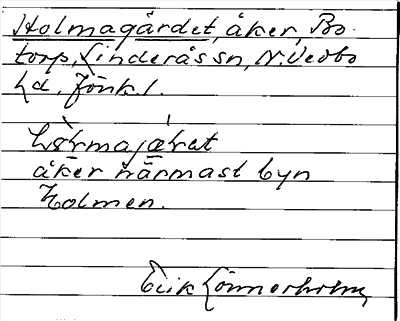 Holmagärdet, åker, Bo-
torp, Linderås sn, N. Vedbo
hd. Jönk l.
åker närmast byn
Holmen.
Erik Lönnerholm